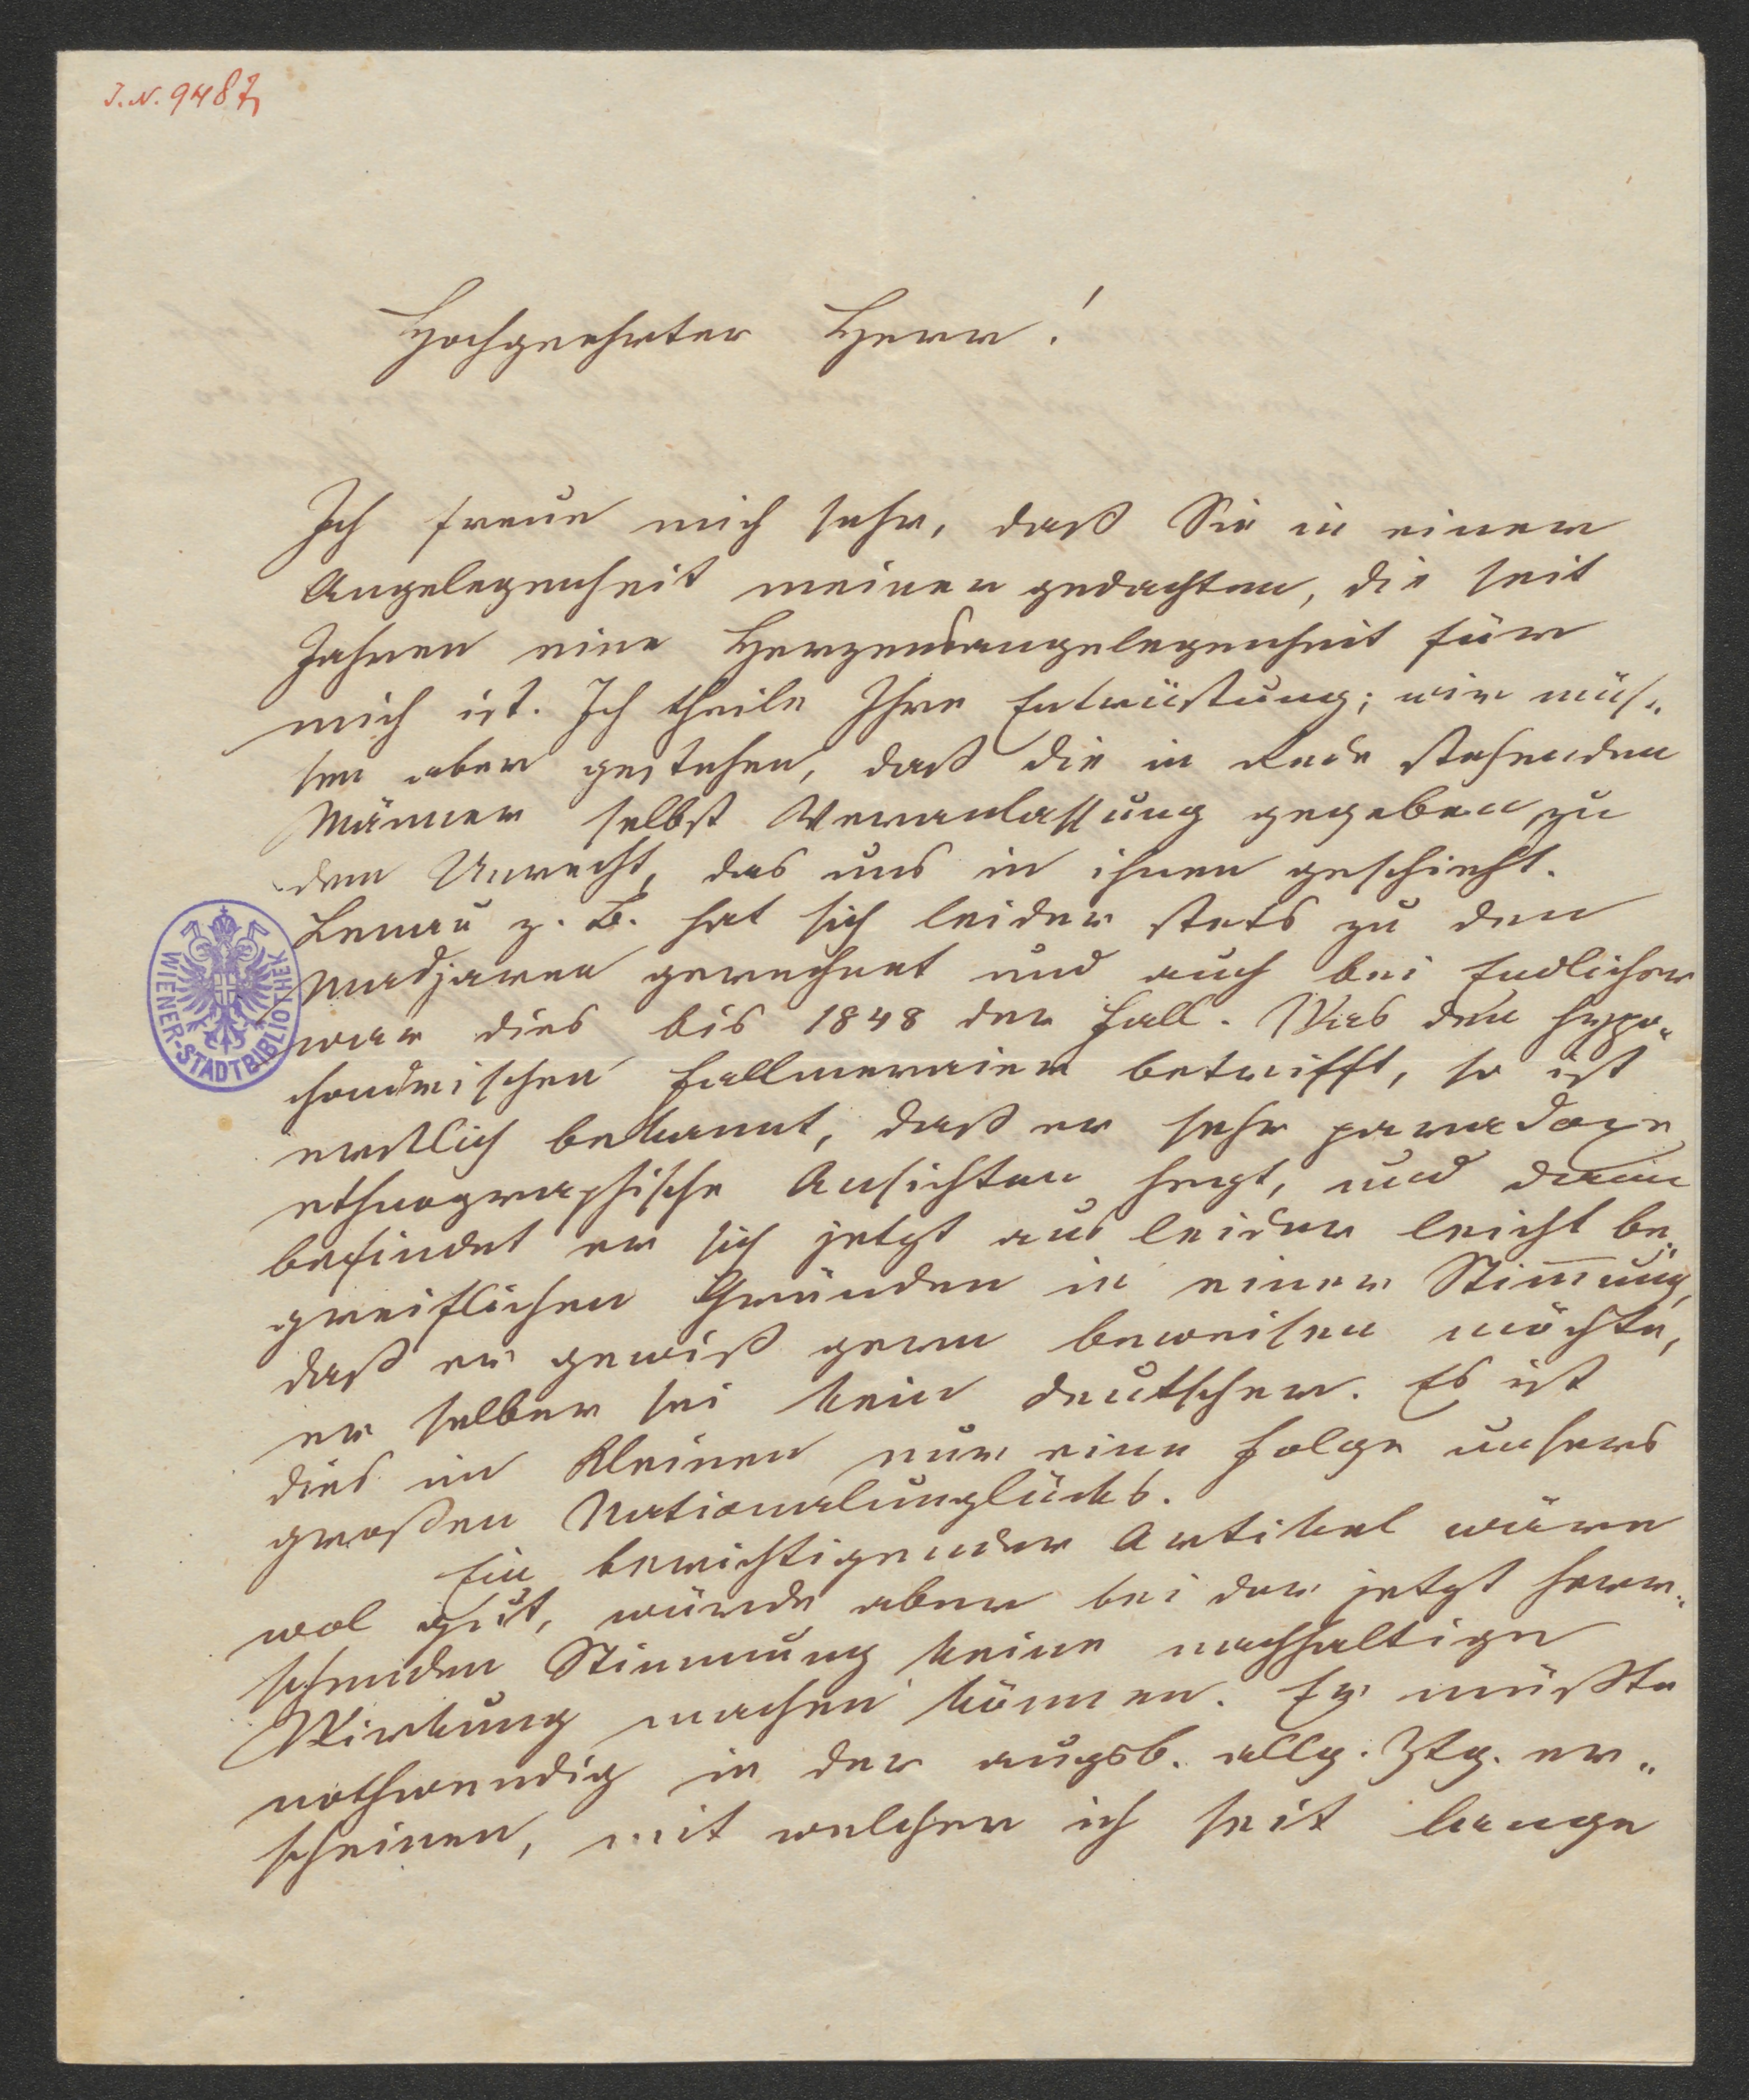 J.N. 9487
Hochgeehrter Herr!
Ich freue mich sehr, daß Sie in einer
Angelegenheit meiner gedachten, die seit
Jahren eine Herzensangelegenheit für
mich ist. Ich theile Ihre Entrüstung; wir müs„
sen aber gestehen, daß die in Rede stehenden
Männer selbst Veranlassung gegeben zu
dem Unrecht, das uns in ihnen geschieht.
Lenau z. B. hat sich leider stets zu den
Madjaren gerechnet und auch bei Endlicher
war dies bis 1848 der Fall. Was den hypo„
chondrischen Fallmeraier betrifft, so ist
erstlich bekannt, daß er sehr paradoxe
ethnographische Ansichten hegt, und dann
befindet er sich jetzt aus leider leicht be„
greiflichen Gründen in einer Stim̅ung,
daß er gewiß gern beweisen möchte,
er selber sei kein Deutscher. Es ist
dies im Kleinen nur eine Folge unsers
großen Nationalunglücks.
Ein berichtigender Artikel wäre
wol gut, würde aber bei der jetzt herr„
schenden Stimmung keine nachhaltige
Wirkung machen können. Er müßte
nothwendig in der augsb. allg. Ztg. er„
scheinen, mit welcher ich seit lange
WIENER-STADTBIBLIOTHEK